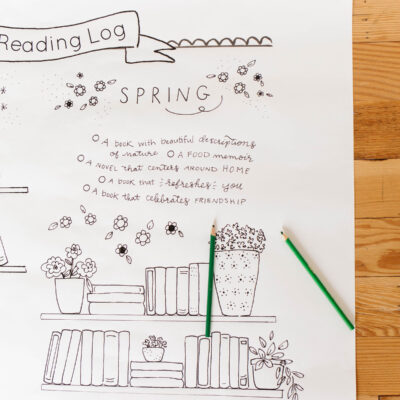 Reading Log
SPRING
A book with beautiful descriptions
of nature A FOOD memoir
A NOVEL THAT CENTERS AROUND HOME
A book that refreshes you
A BOOK THAT CELEBRATES FRIENDSHIP